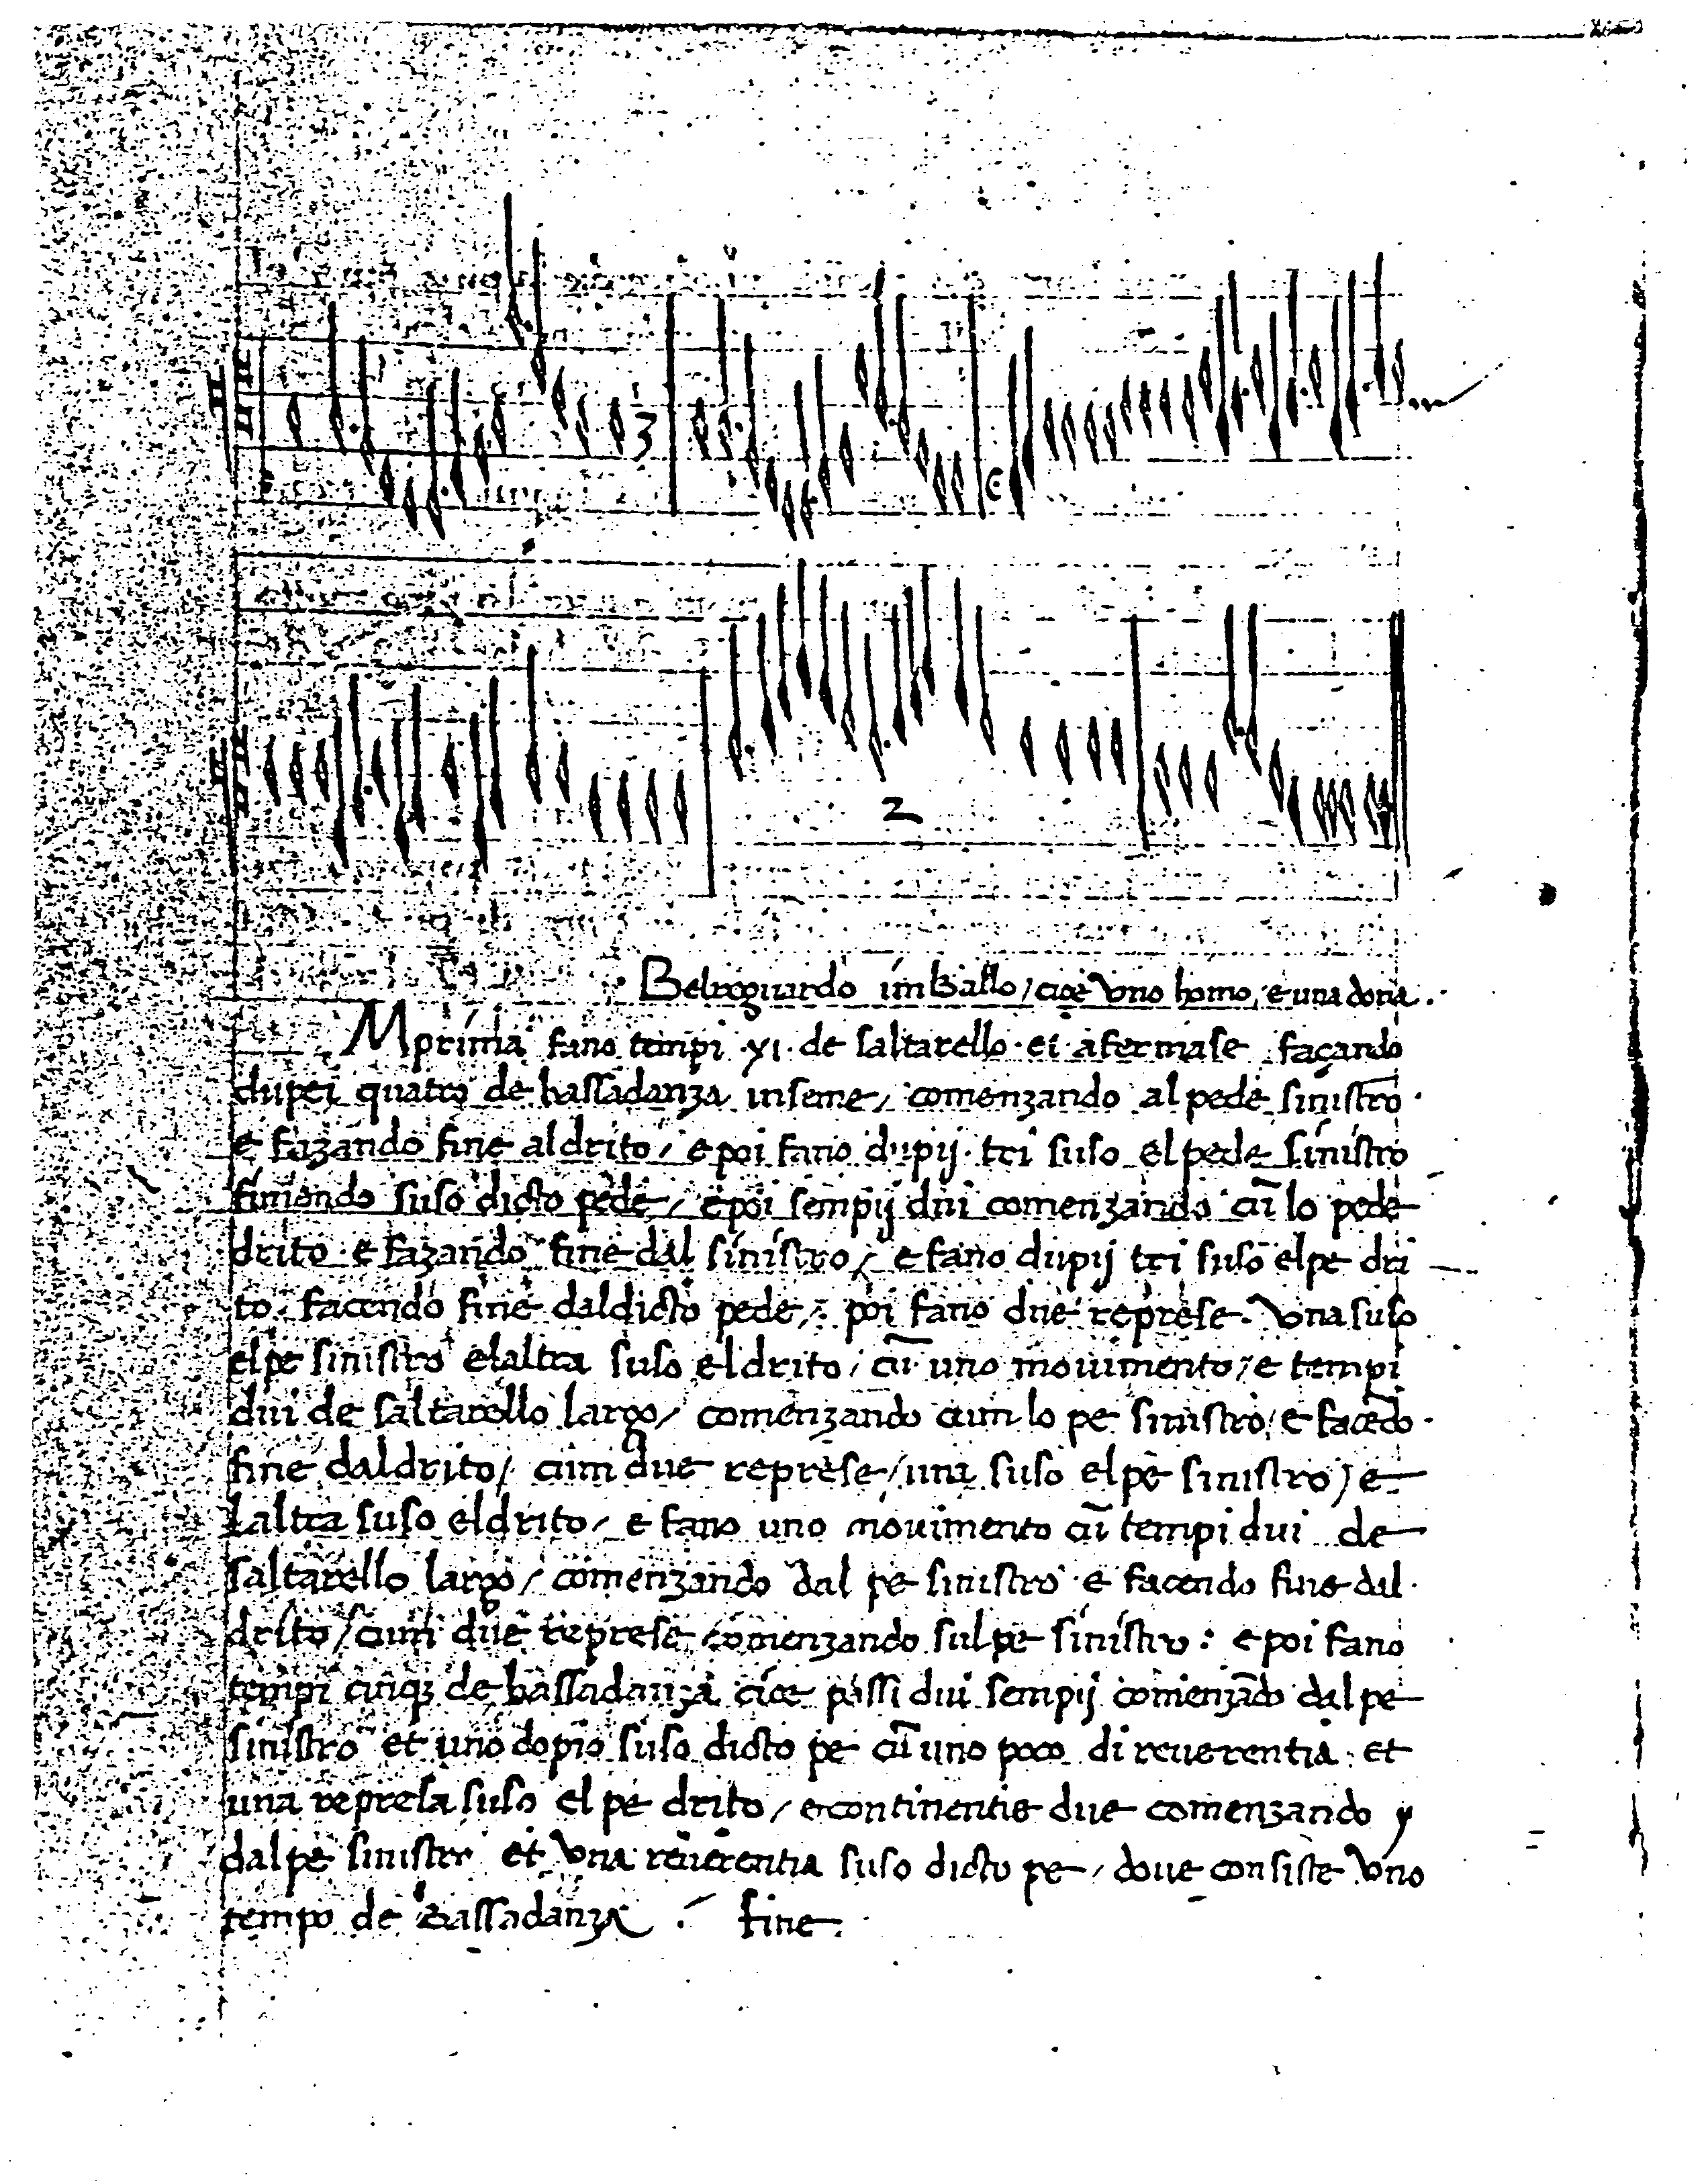 3
2
Belreguardo im Ballo / cioè Uno homo, e una dona.
Mprima fano tempi .xi. de saltarello . ei afermase façando
dupei quatro de bassadanza inseme, comenzando al pede sinistro.
e fazando fine aldrito / e poi fano dupij . tri suso el pede sinistro
finiendo suso dicto pede / e poi sempij dui comenzando cū lo pede
drito . e fazando fine dal sinistro / e fano dupij tri suso el pe dri
to . facendo fine daldicto pede / poi fano due represe . Una suso
el pe sinistro elaltra suso eldrito / cū uno movimento / e tempi
dui de saltarello largo / comenzando cum lo pe sinistro / e facēdo.
fine daldrito / cum due represe / una suso el pe sinistro / e
Laltra suso eldrito / e fano uno movimento cū tempi dui de
saltarello largo / comenzando dal pe sinistro e facendo fine dal.
drito / cum due represe comenzando sul pe sinistro : e poi fano
tempi cinqȝ de bassadanza cioe passi dui sempij comenzādo dal pe
sinistro et uno dopio suso dicto pe cū uno poco di reverentia . et
una represa suso el pe drito / e continentie due comenzando
dal pe sinistro et Una reverentia suso dicto pe / dove consiste Uno
tempo de Bassadanza . fine.